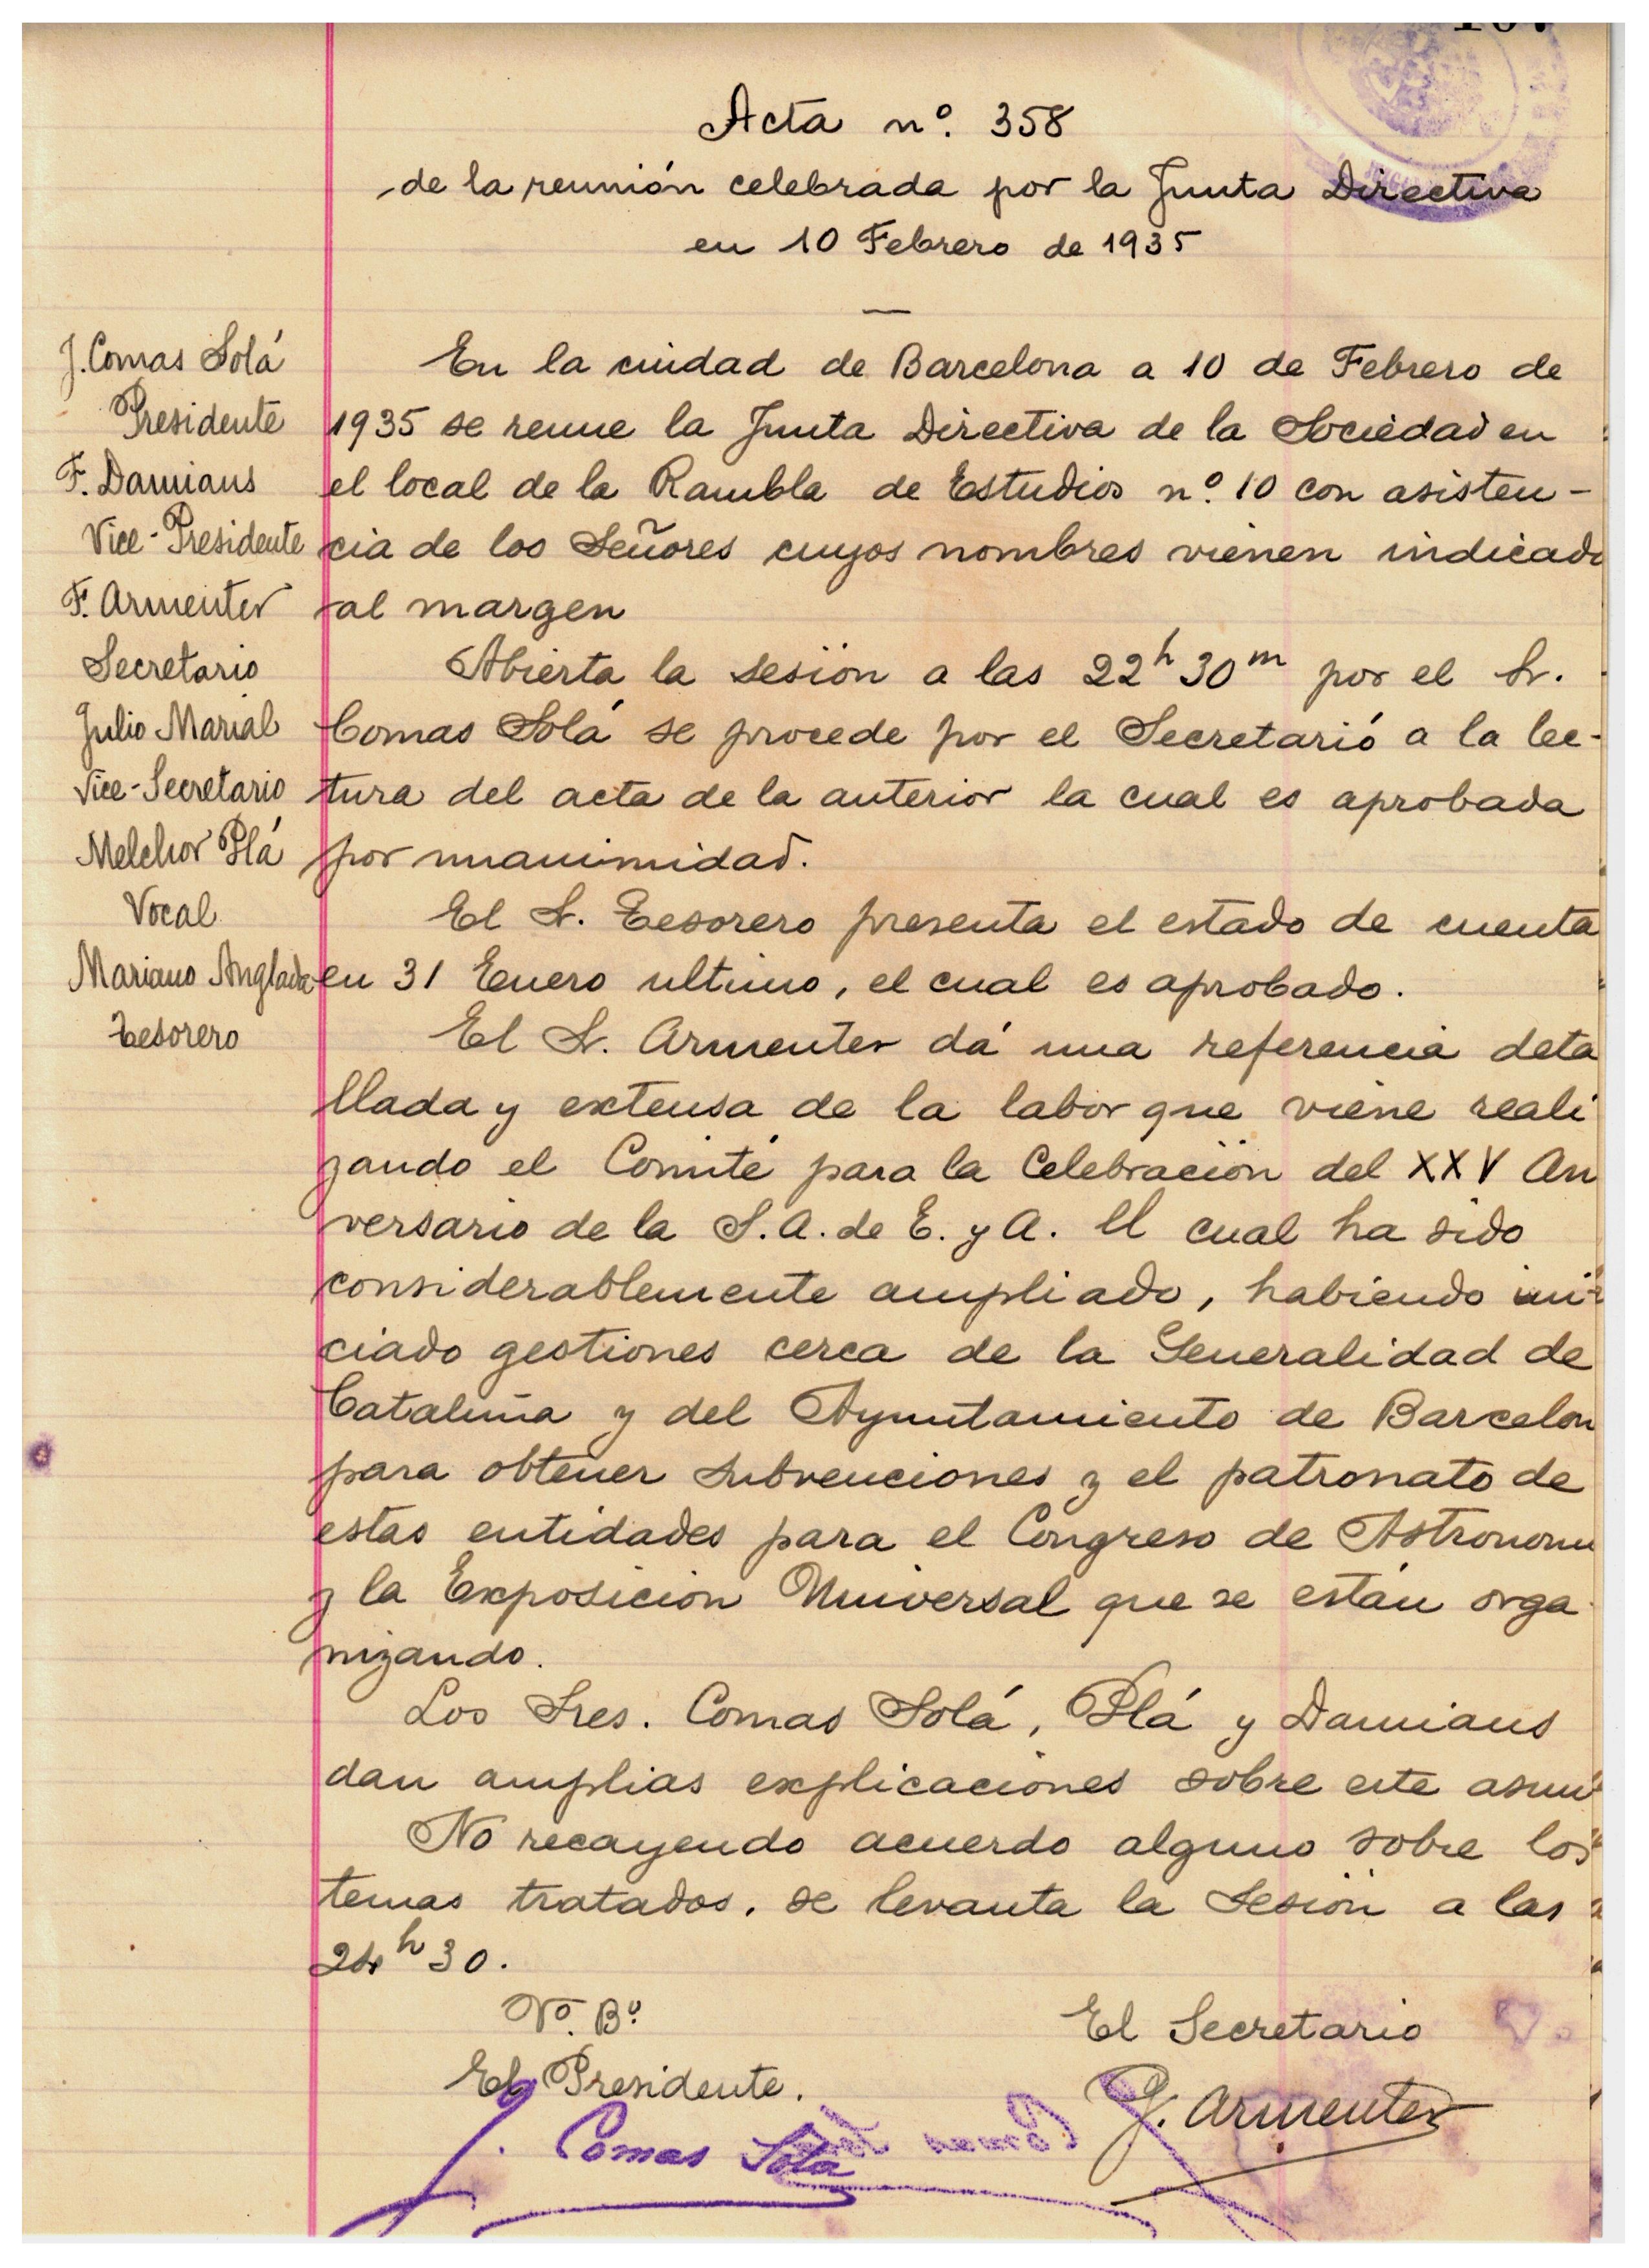 Acta nº. 358
de la reunión celebrada por la Junta Directiva
en 10 Febrero de 1935
J. Comas Solá
Presidente
F. Damians
Vice-Presidente
F. Armenter
Secretario
Julio Marial
Vice-Secretario
Melchor Plá
Vocal
Mariano Anglada
Tesorero
En la ciudad de Barcelona a 10 de Febrero de
1935 se reune la Junta Directiva de la Sociedad en
el local de la Rambla de Estudios nº 10 con asisten-
cia de los Señores cuyos nombres vienen indicado
al margen
Abierta la sesión a las 22h 30m por el Sr.
Comas Solá se procede por el Secretarió a la lec-
tura del acta de la anterior la cual es aprobada
por unanimidad.
El Sr. Tesorero presenta el estado de cuenta
en 31 Enero ultimo, el cual es aprobado.
El Sr. Armenter dá una referencia deta
llada y extensa de la labor que viene reali
zando el Comité para la Celebración del XXV An
versario de la S.A. de E. y A. El cual ha sido
considerablemente ampliado, habiendo ini-
ciado gestiones cerca de la Generalidad de
Cataluña y del Ayuntamiento de Barcelon
para obtener subvenciones y el patronato de
estas entidades para el Congreso de Astronomi
y la Exposición Universal que se están orga
nizando.
Los Sres. Comas Solá, Plá y Damians
dan amplias explicaciones sobre este asunt
No recayendo acuerdo alguno sobre los
temas tratados, se levanta la Sesión a las
24h 30.
Vº. Bº.
El Presidente.
J. Comas Solá
El Secretario
F. Armenter